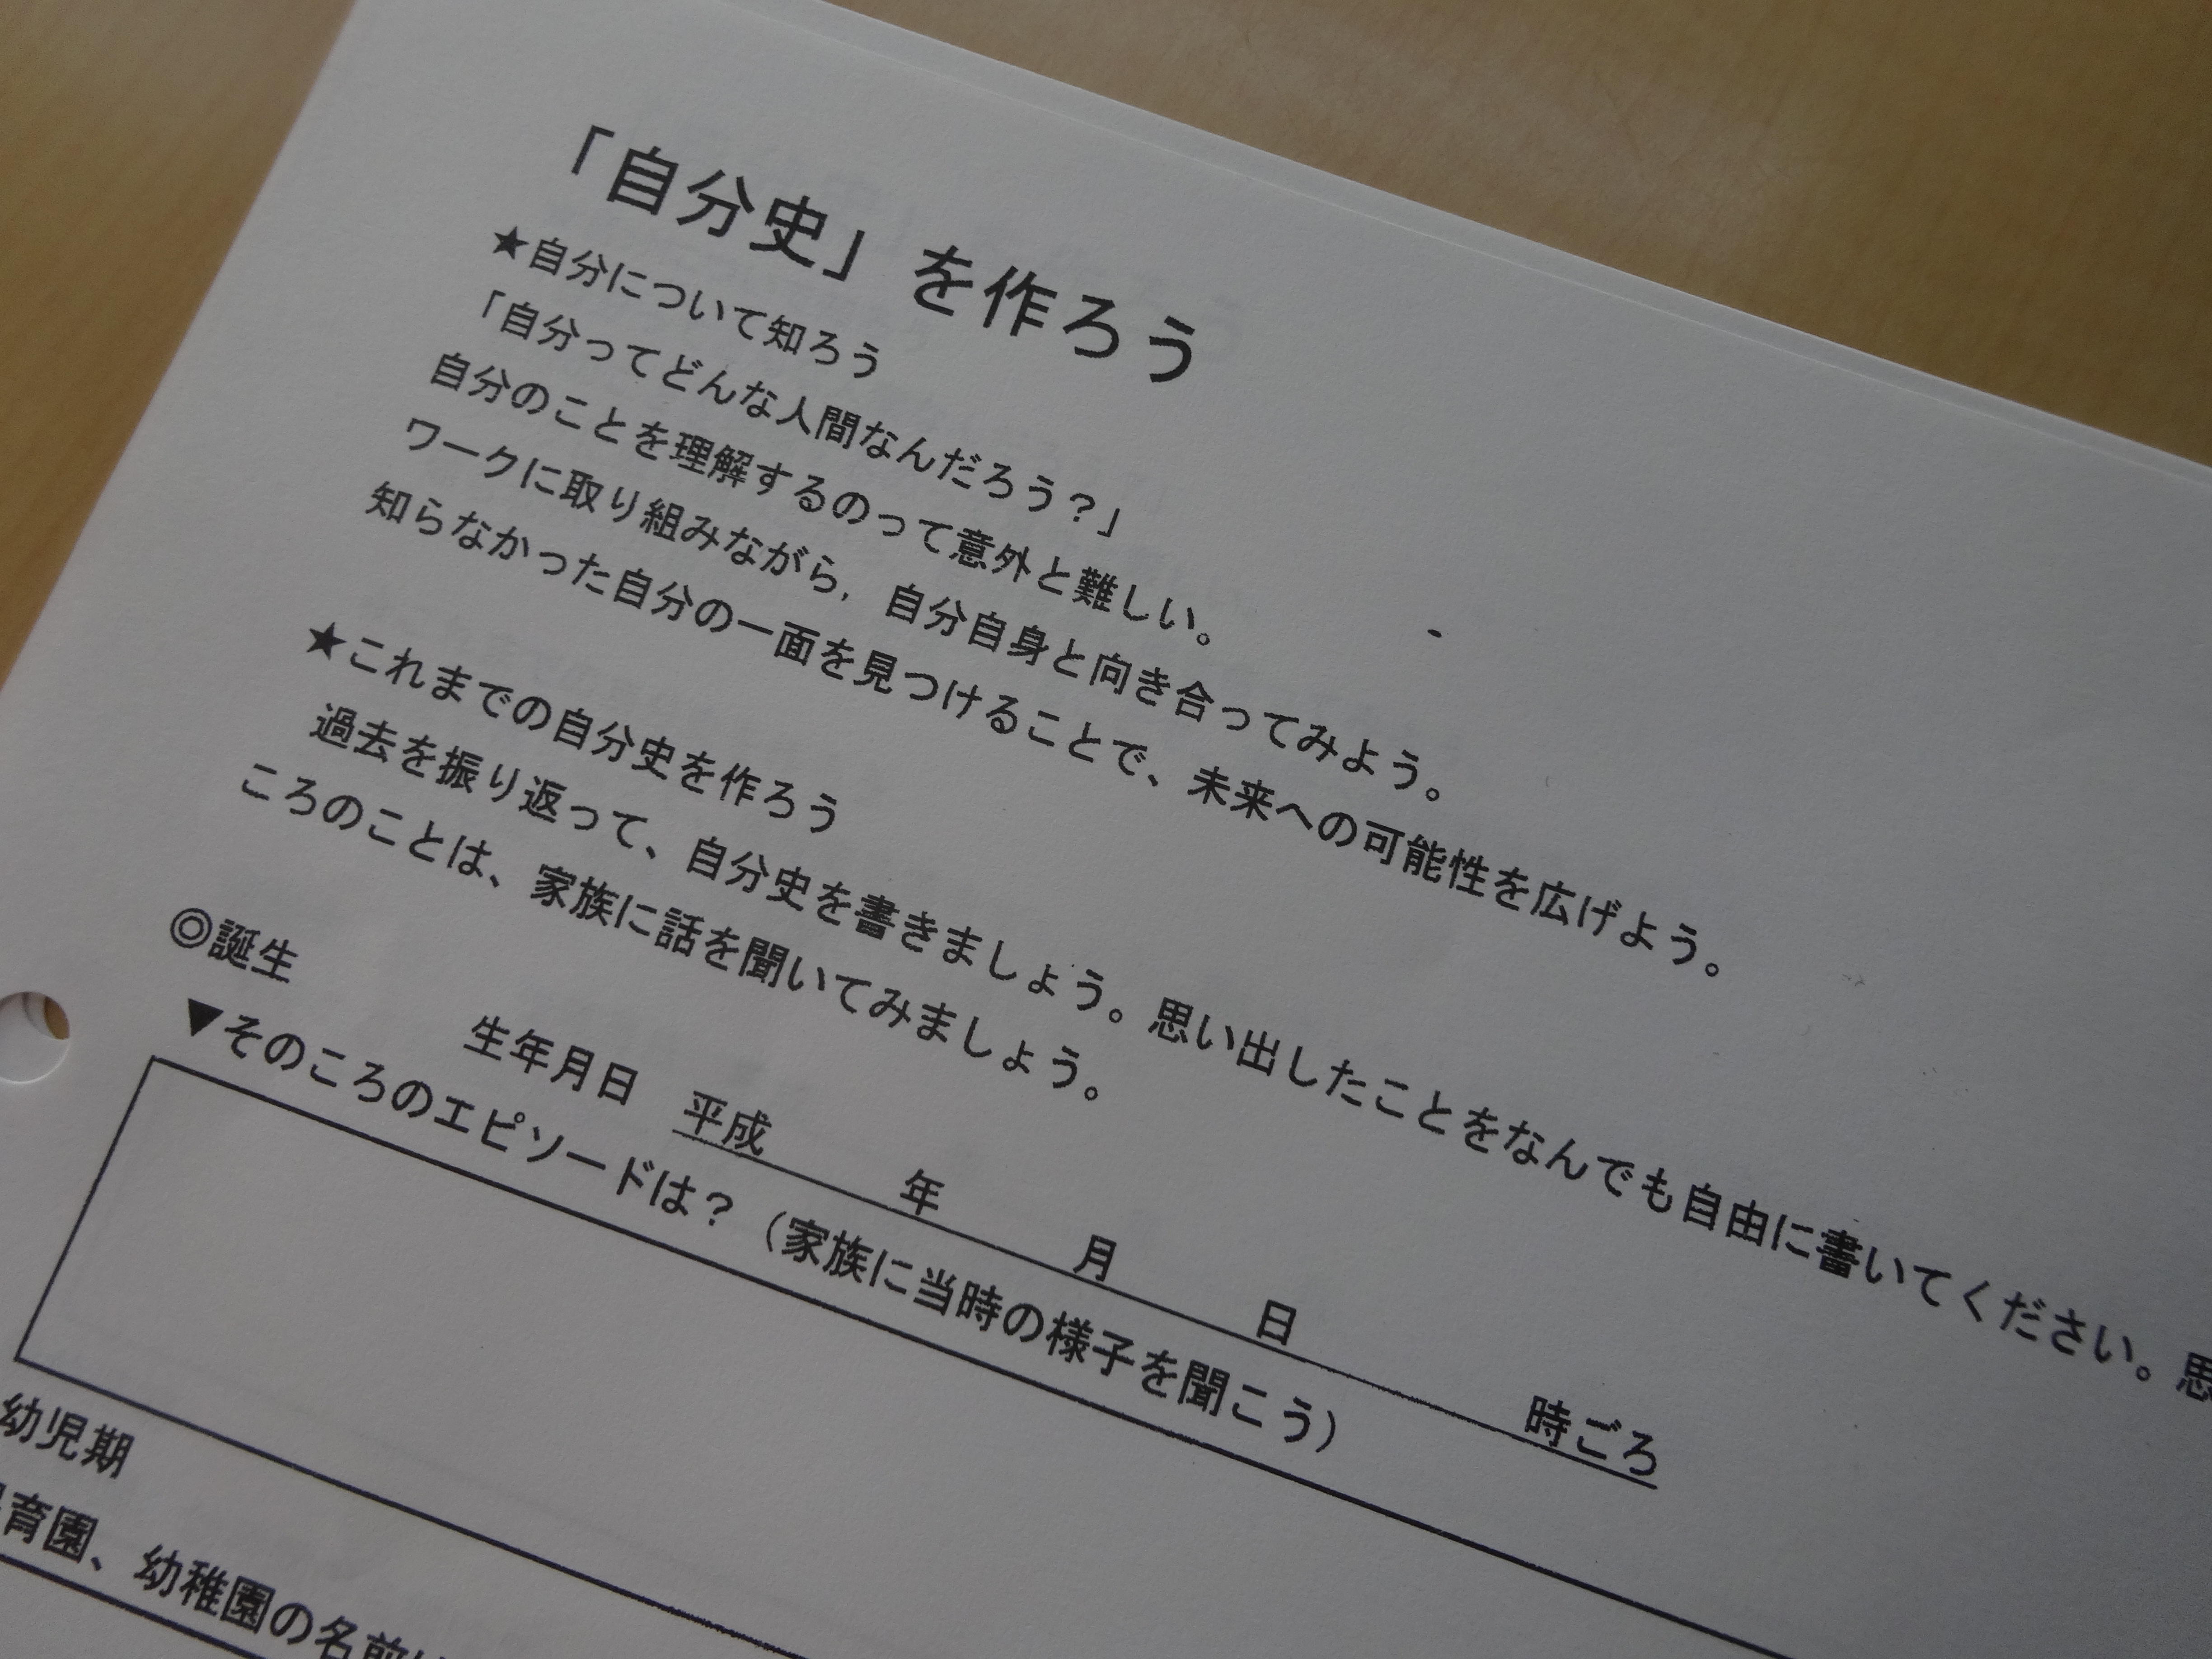 「自分史」を作ろう
★自分について知ろう
「自分ってどんな人間なんだろう？」
自分のことを理解するのって意外と難しい。
ワークに取り組みながら，自分自身と向き合ってみよう。
知らなかった自分の一面を見つけることで、未来への可能性を広げよう。
★これまでの自分史を作ろう
過去を振り返って、自分史を書きましょう。思い出したことをなんでも自由に書いてください。思
ころのことは、家族に話を聞いてみましょう。
◎誕生
生年月日　平成　　　年　　　月　　　日　　　時ごろ
▼そのころのエピソードは？（家族に当時の様子を聞こう）
幼児期
育園、幼稚園の名前は